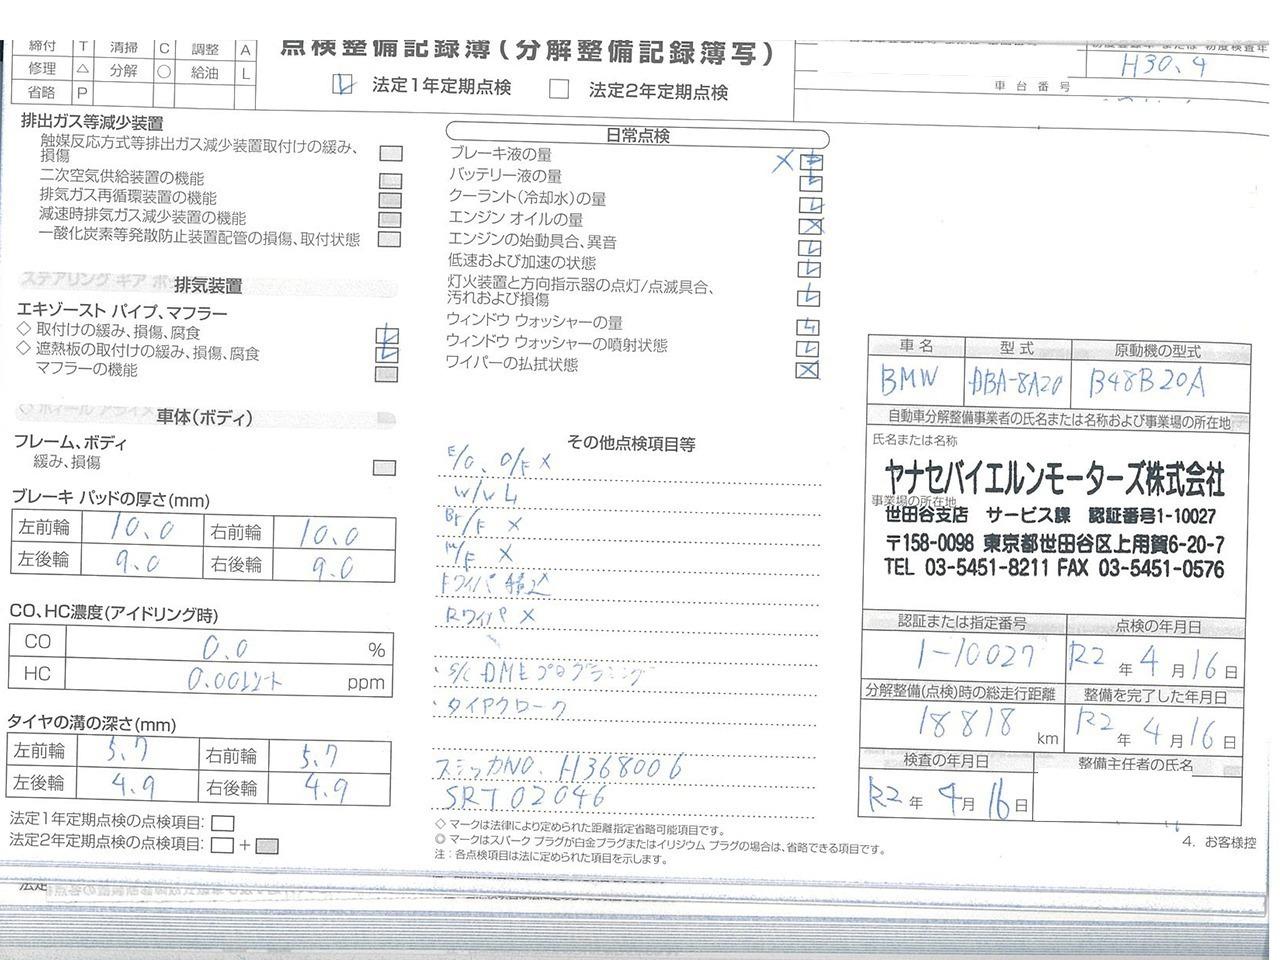 締付 T 清掃 C 調整 A
修理 △ 分解 ○ 給油 L
省略 P
点検整備記録簿(分解整備記録簿写)
法定1年定期点検 法定2年定期点検
H30.4
車台番号
排出ガス等減少装置
触媒反応方式等排出ガス減少装置取付けの緩み、
損傷
二次空気供給装置の機能
排気ガス再循環装置の機能
減速時排気ガス減少装置の機能
一酸化炭素等発散防止装置配管の損傷、取付状態
排気装置
エキゾースト パイプ、マフラー
◇ 取付けの緩み、損傷、腐食
◇ 遮熱板の取付けの緩み、損傷、腐食
マフラーの機能
車体(ボディ)
フレーム、ボディ
緩み、損傷
ブレーキ パッドの厚さ(mm)
左前輪 10.0 右前輪 10.0
左後輪 9.0 右後輪 9.0
CO、HC濃度(アイドリング時)
CO 0.0 %
HC ppm
タイヤの溝の深さ(mm)
左前輪 5.7 右前輪 5.7
左後輪 4.9 右後輪 4.9
法定1年定期点検の点検項目:
法定2年定期点検の点検項目: +
日常点検
ブレーキ液の量
バッテリー液の量
クーラント(冷却水)の量
エンジン オイルの量
エンジンの始動具合、異音
低速および加速の状態
灯火装置と方向指示器の点灯/点滅具合、
汚れおよび損傷
ウィンドウ ウォッシャーの量
ウィンドウ ウォッシャーの噴射状態
ワイパーの払拭状態
その他点検項目等
E/O、O/F X
W/W L
Br/F X
M/F X
Rワイパ X
・S/C DMEプログラミング
・タイヤクローク
ステッカNO. H368006
SRT02046
◇ マークは法律により定められた距離指定省略可能項目です。
◎ マークはスパーク プラグが白金プラグまたはイリジウム プラグの場合は、省略できる項目です。
注:各点検項目は法に定められた項目を示します。
車名 型式 原動機の型式
BMW DBA-8A20 B48B20A
自動車分解整備事業者の氏名または名称および事業場の所在地
氏名または名称
ヤナセバイエルンモーターズ株式会社
事業場の所在地
世田谷支店 サービス課 認証番号1-10027
〒158-0098 東京都世田谷区上用賀6-20-7
TEL 03-5451-8211 FAX 03-5451-0576
認証または指定番号 点検の年月日
1-10027 R2年4月16日
分解整備(点検)時の総走行距離 整備を完了した年月日
18818 km R2年4月16日
検査の年月日 整備主任者の氏名
R2年4月16日
4. お客様控